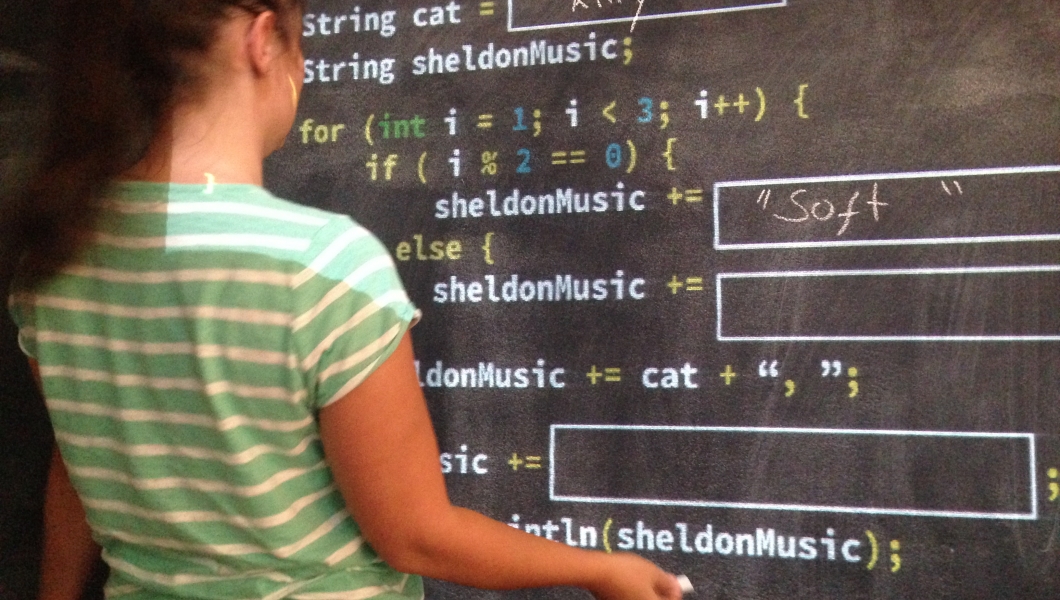 String cat =
String sheldonMusic;
for (int i = 1; i < 3; i++) {
if ( i % 2 == 0) {
sheldonMusic += "Soft "
else {
sheldonMusic +=
ldonMusic += cat + “, ”;
sic += ;
intln(sheldonMusic);